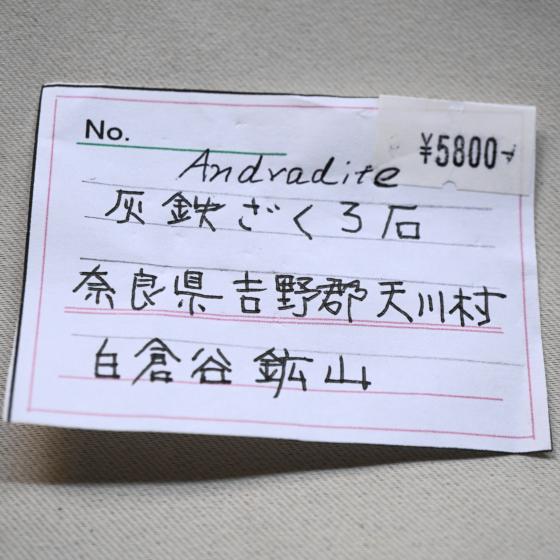 No.
¥5800
Andradite
灰鉄ざくろ石
奈良県吉野郡天川村
白倉谷鉱山